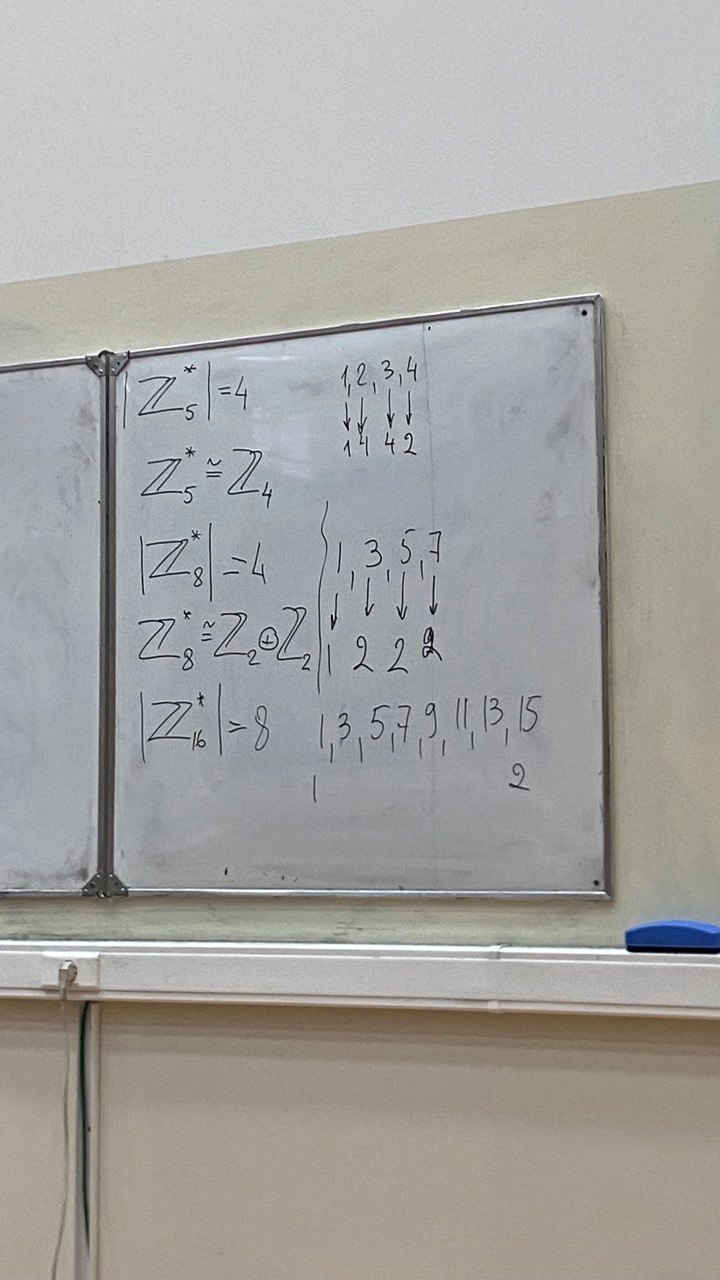 |ℤ₅*| = 4 1, 2, 3, 4
↓ ↓ ↓ ↓
1 4 4 2
ℤ₅* ≅ ℤ₄
|ℤ₈*| = 4 1, 3, 5, 7
↓ ↓ ↓ ↓
ℤ₈* ≅ ℤ₂ ⊕ ℤ₂ 1 2 2 2
|ℤ₁₆*| = 8 1, 3, 5, 7, 9, 11, 13, 15
1 2